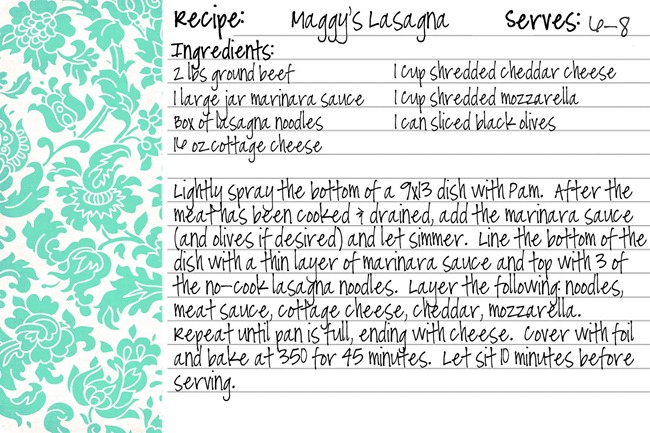 Recipe: Maggy's Lasagna Serves: 6-8
Ingredients:
2 lbs ground beef 1 cup shredded cheddar cheese
1 large jar marinara sauce 1 cup shredded mozzarella
Box of lasagna noodles 1 can sliced black olives
16 oz cottage cheese
Lightly spray the bottom of a 9x13 dish with Pam. After the
meat has been cooked & drained, add the marinara sauce
(and olives if desired) and let simmer. Line the bottom of the
dish with a thin layer of marinara sauce and top with 3 of
the no-cook lasagna noodles. Layer the following noodles,
meat sauce, cottage cheese, cheddar, mozzarella.
Repeat until pan is full, ending with cheese. Cover with foil
and bake at 350 for 45 minutes. Let sit 10 minutes before
serving.